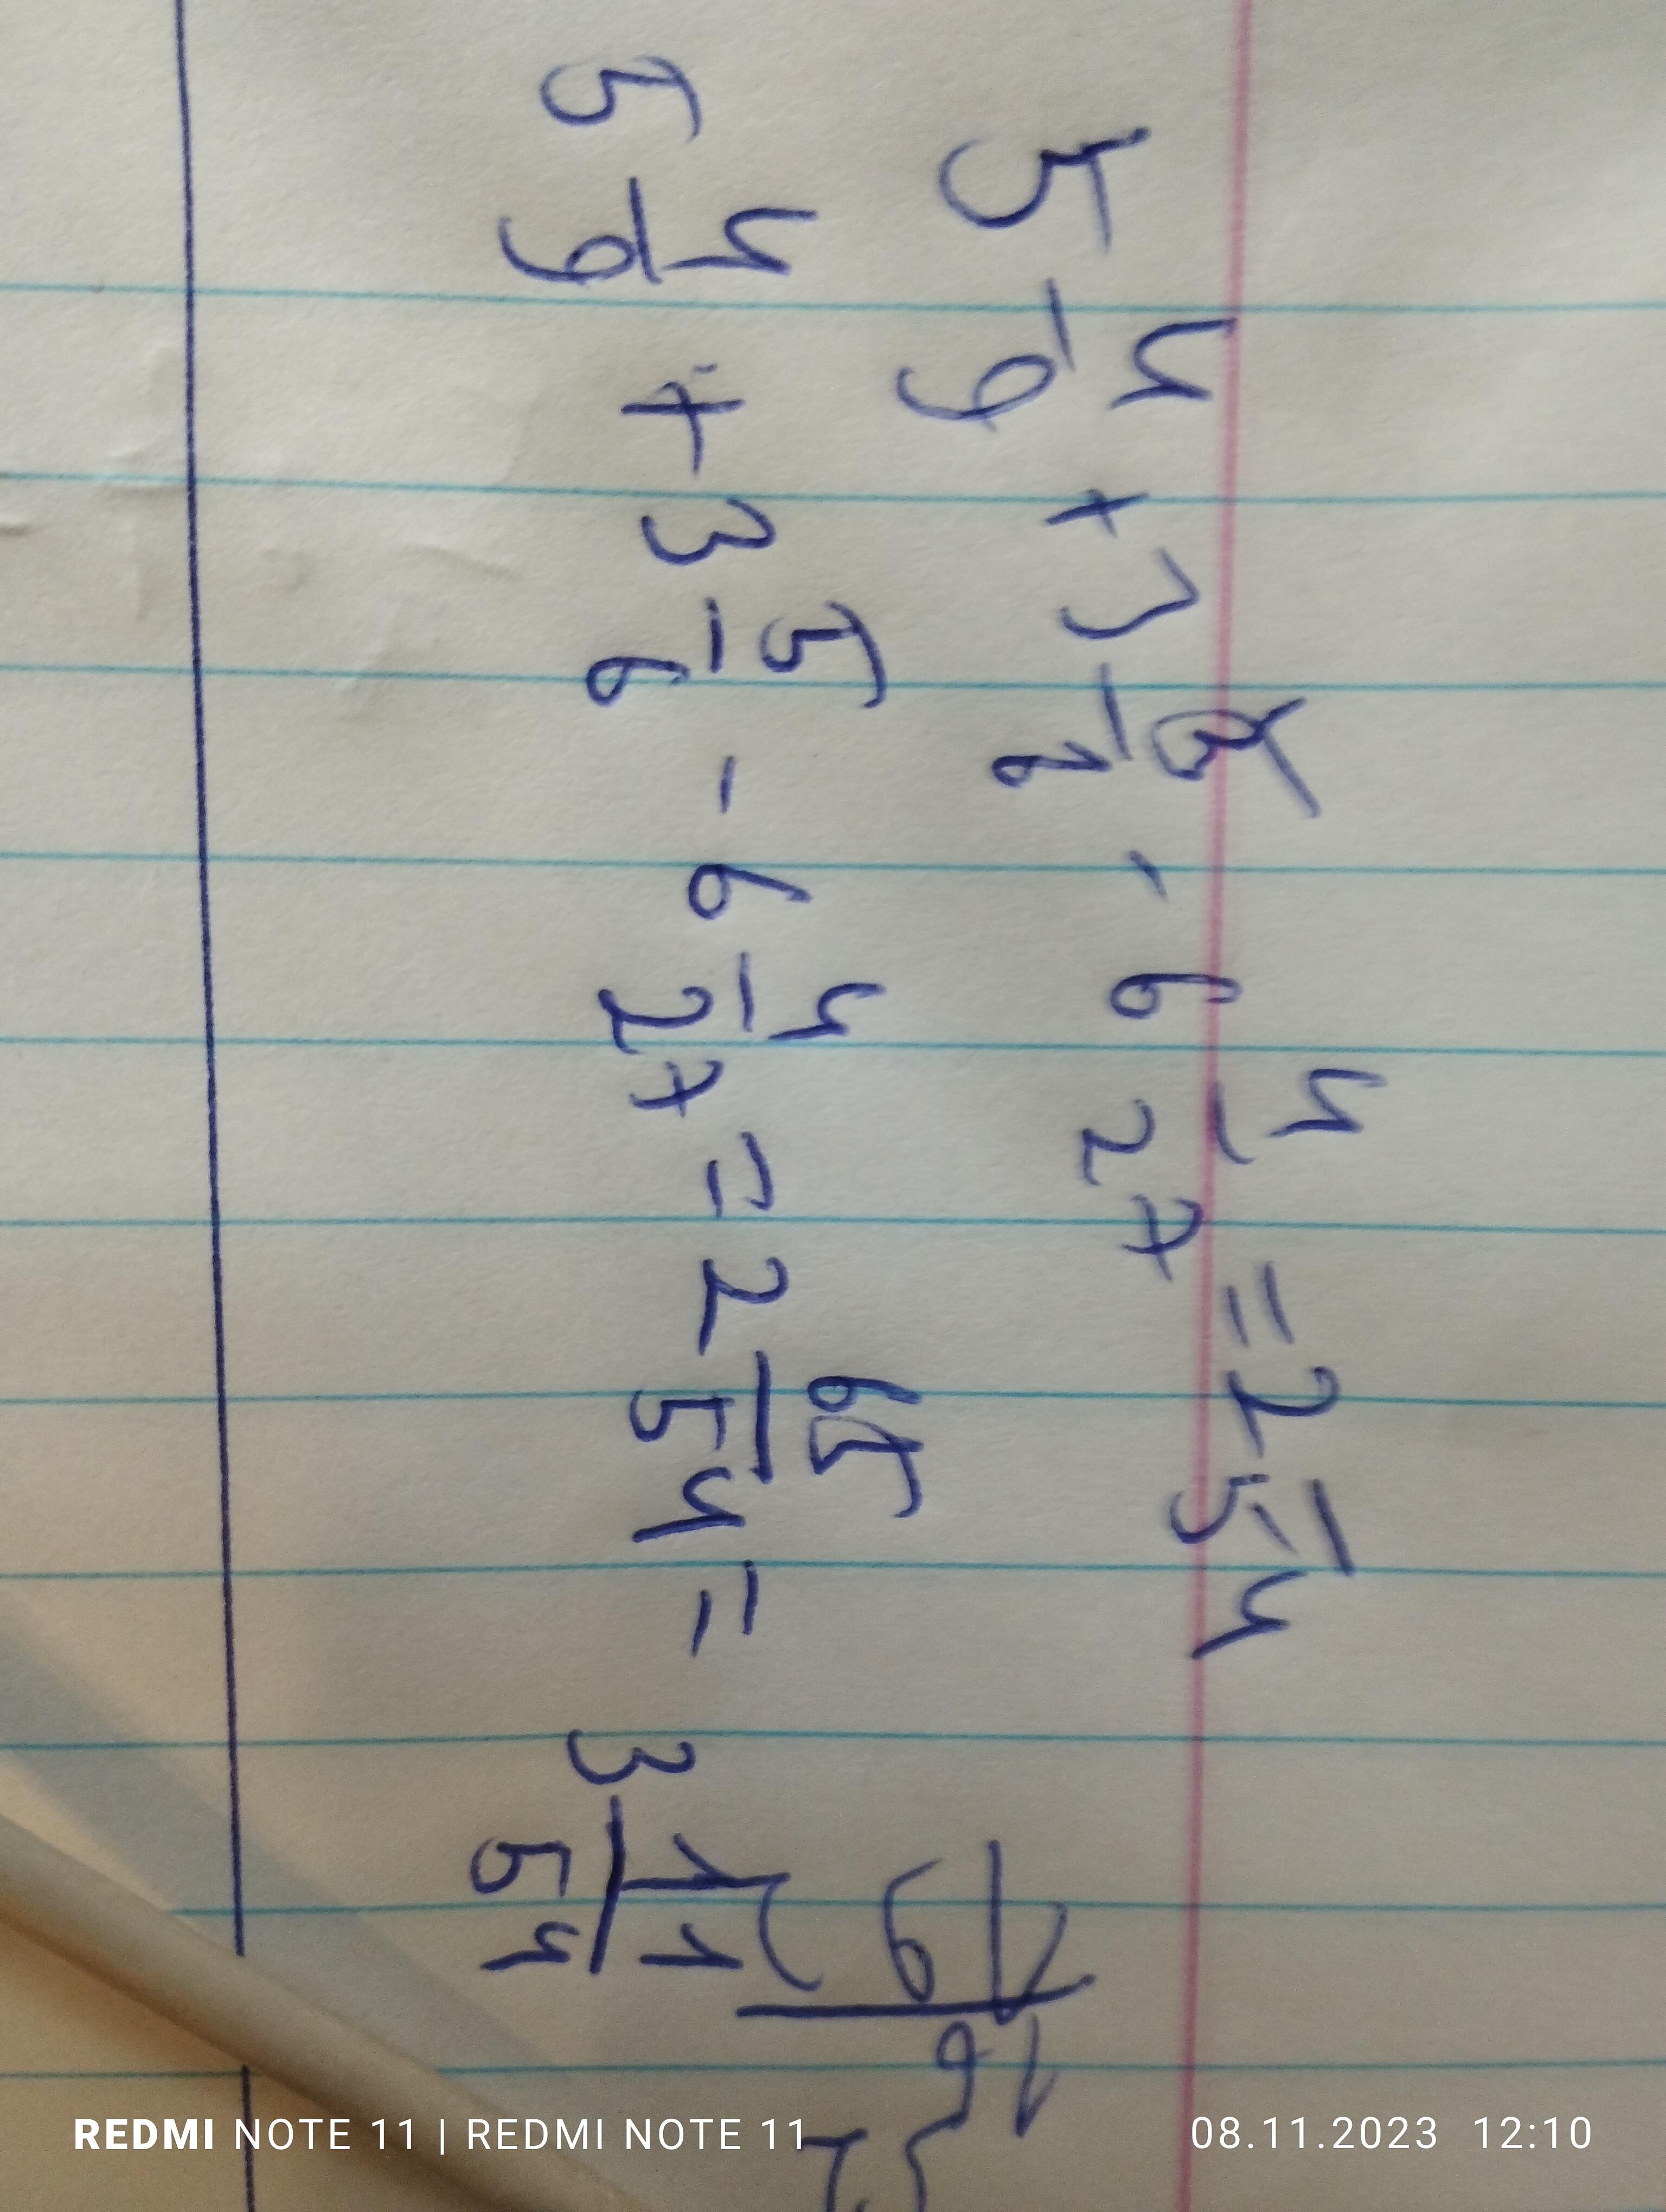 5 4/9 + 3 5/6 - 6 4/27 = 2 /54
5 4/9 + 3 5/6 - 6 4/27 = 2 65/54 = 3 11/54
REDMI NOTE 11 | REDMI NOTE 11
08.11.2023 12:10